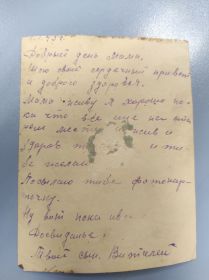 Добрый день Мама.
Шлю свой сердечный привет
и доброго здоровья.
Мама живу я хорошо по-
ка что все еще на ста
ром месте жив и
здоров и те-
бе желаю
Посылаю тебе фотокар-
точку.
Ну вот пока
Досвиданье.
Твой сын Виталий